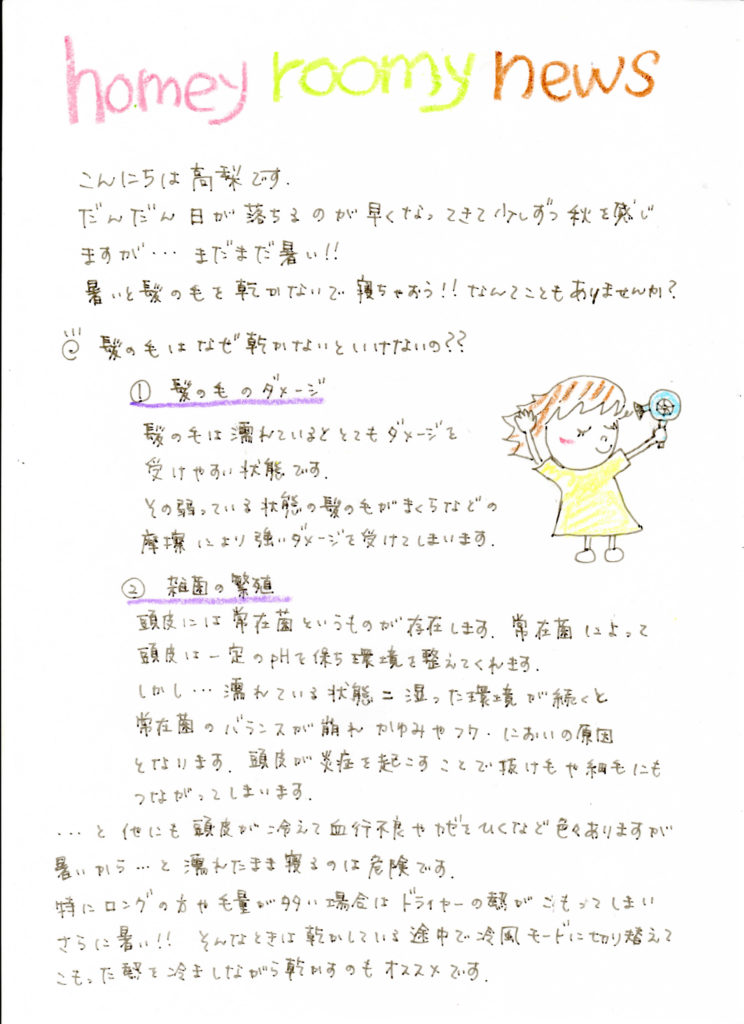 homey roomy news
こんにちは高梨です.
だんだん日が落ちるのが早くなってきて少しずつ秋を感じ
ますが… まだまだ暑い!!
暑いと髪の毛を乾かないで寝ちゃおう!!なんてこともありませんか?
髪の毛はなぜ乾かないといけないの??
① 髪の毛のダメージ
髪の毛は濡れているととてもダメージを
受けやすい状態です.
その弱っている状態の髪の毛がまくらなどの
摩擦により強いダメージを受けてしまいます.
② 雑菌の繁殖
頭皮には常在菌というものが存在します. 常在菌によって
頭皮は一定のpHを保ち環境を整えてくれます.
しかし… 濡れている状態=湿った環境が続くと
常在菌のバランスが崩れ かゆみやフケ・においの原因
となります. 頭皮が炎症を起こすことで抜け毛や細毛にも
つながってしまいます.
…と 他にも 頭皮が冷えて血行不良やカゼをひくなど色々ありますが
暑いから…と 濡れたまま寝るのは危険です.
特にロングの方や毛量が多い場合はドライヤーの熱がこもってしまい
さらに暑い!! そんなときは乾かしている途中で冷風モードに切り替えて
こもった熱を冷ましながら乾かすのもオススメです.